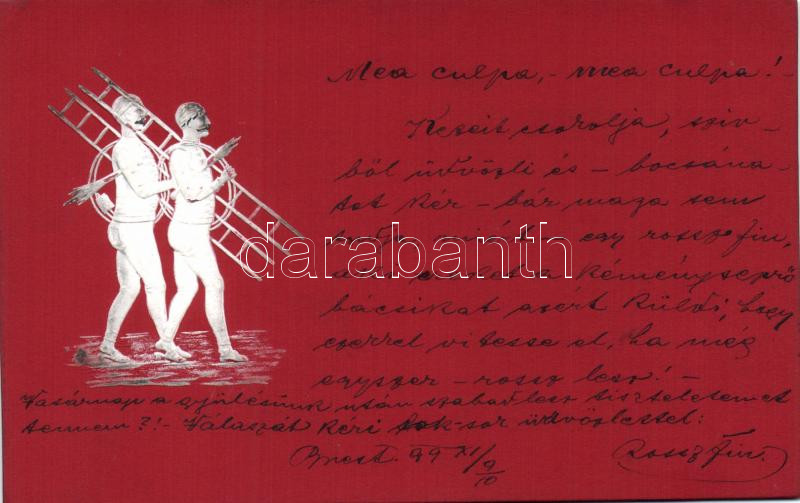 Mea culpa, - mea culpa! -
Kezeit csókolja, sziv-
ből üdvözli és - bocsána-
tot kér - bár maga sem
tudja miért - egy rossz fiu,
a kéményseprő
bácsikat azért küldi, hogy
ezerrel vitesse el, ha még
egyszer - rossz lesz! -
Vasárnap a gyülésünk után szabad lesz tiszteletemet
tennem?! - Válaszát kéri sok-sor üdvözlettel:
99 XI/9
10
Rossz fiu.
darabanth